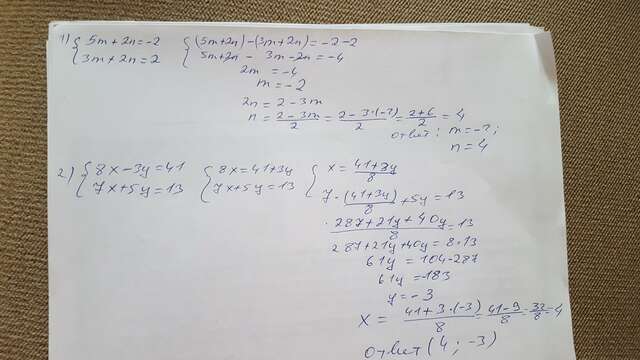 1) { 5m + 2n = -2 { (5m+2n) - (3m+2n) = -2-2
{ 3m + 2n = 2 { 5m+2n - 3m-2n = -4
2m = -4
m = -2
2n = 2 - 3m
n = (2-3m)/2 = (2-3·(-2))/2 = (2+6)/2 = 4
ответ: m = -2;
n = 4
2) { 8x - 3y = 41 { 8x = 41+3y { x = (41+3y)/8
{ 7x + 5y = 13 { 7x + 5y = 13 7·(41+3y)/8 + 5y = 13
(287+21y+40y)/8 = 13
287+21y+40y = 8·13
61y = 104-287
61y = -183
y = -3
x = (41+3·(-3))/8 = (41-9)/8 = 32/8 = 4
ответ (4; -3)